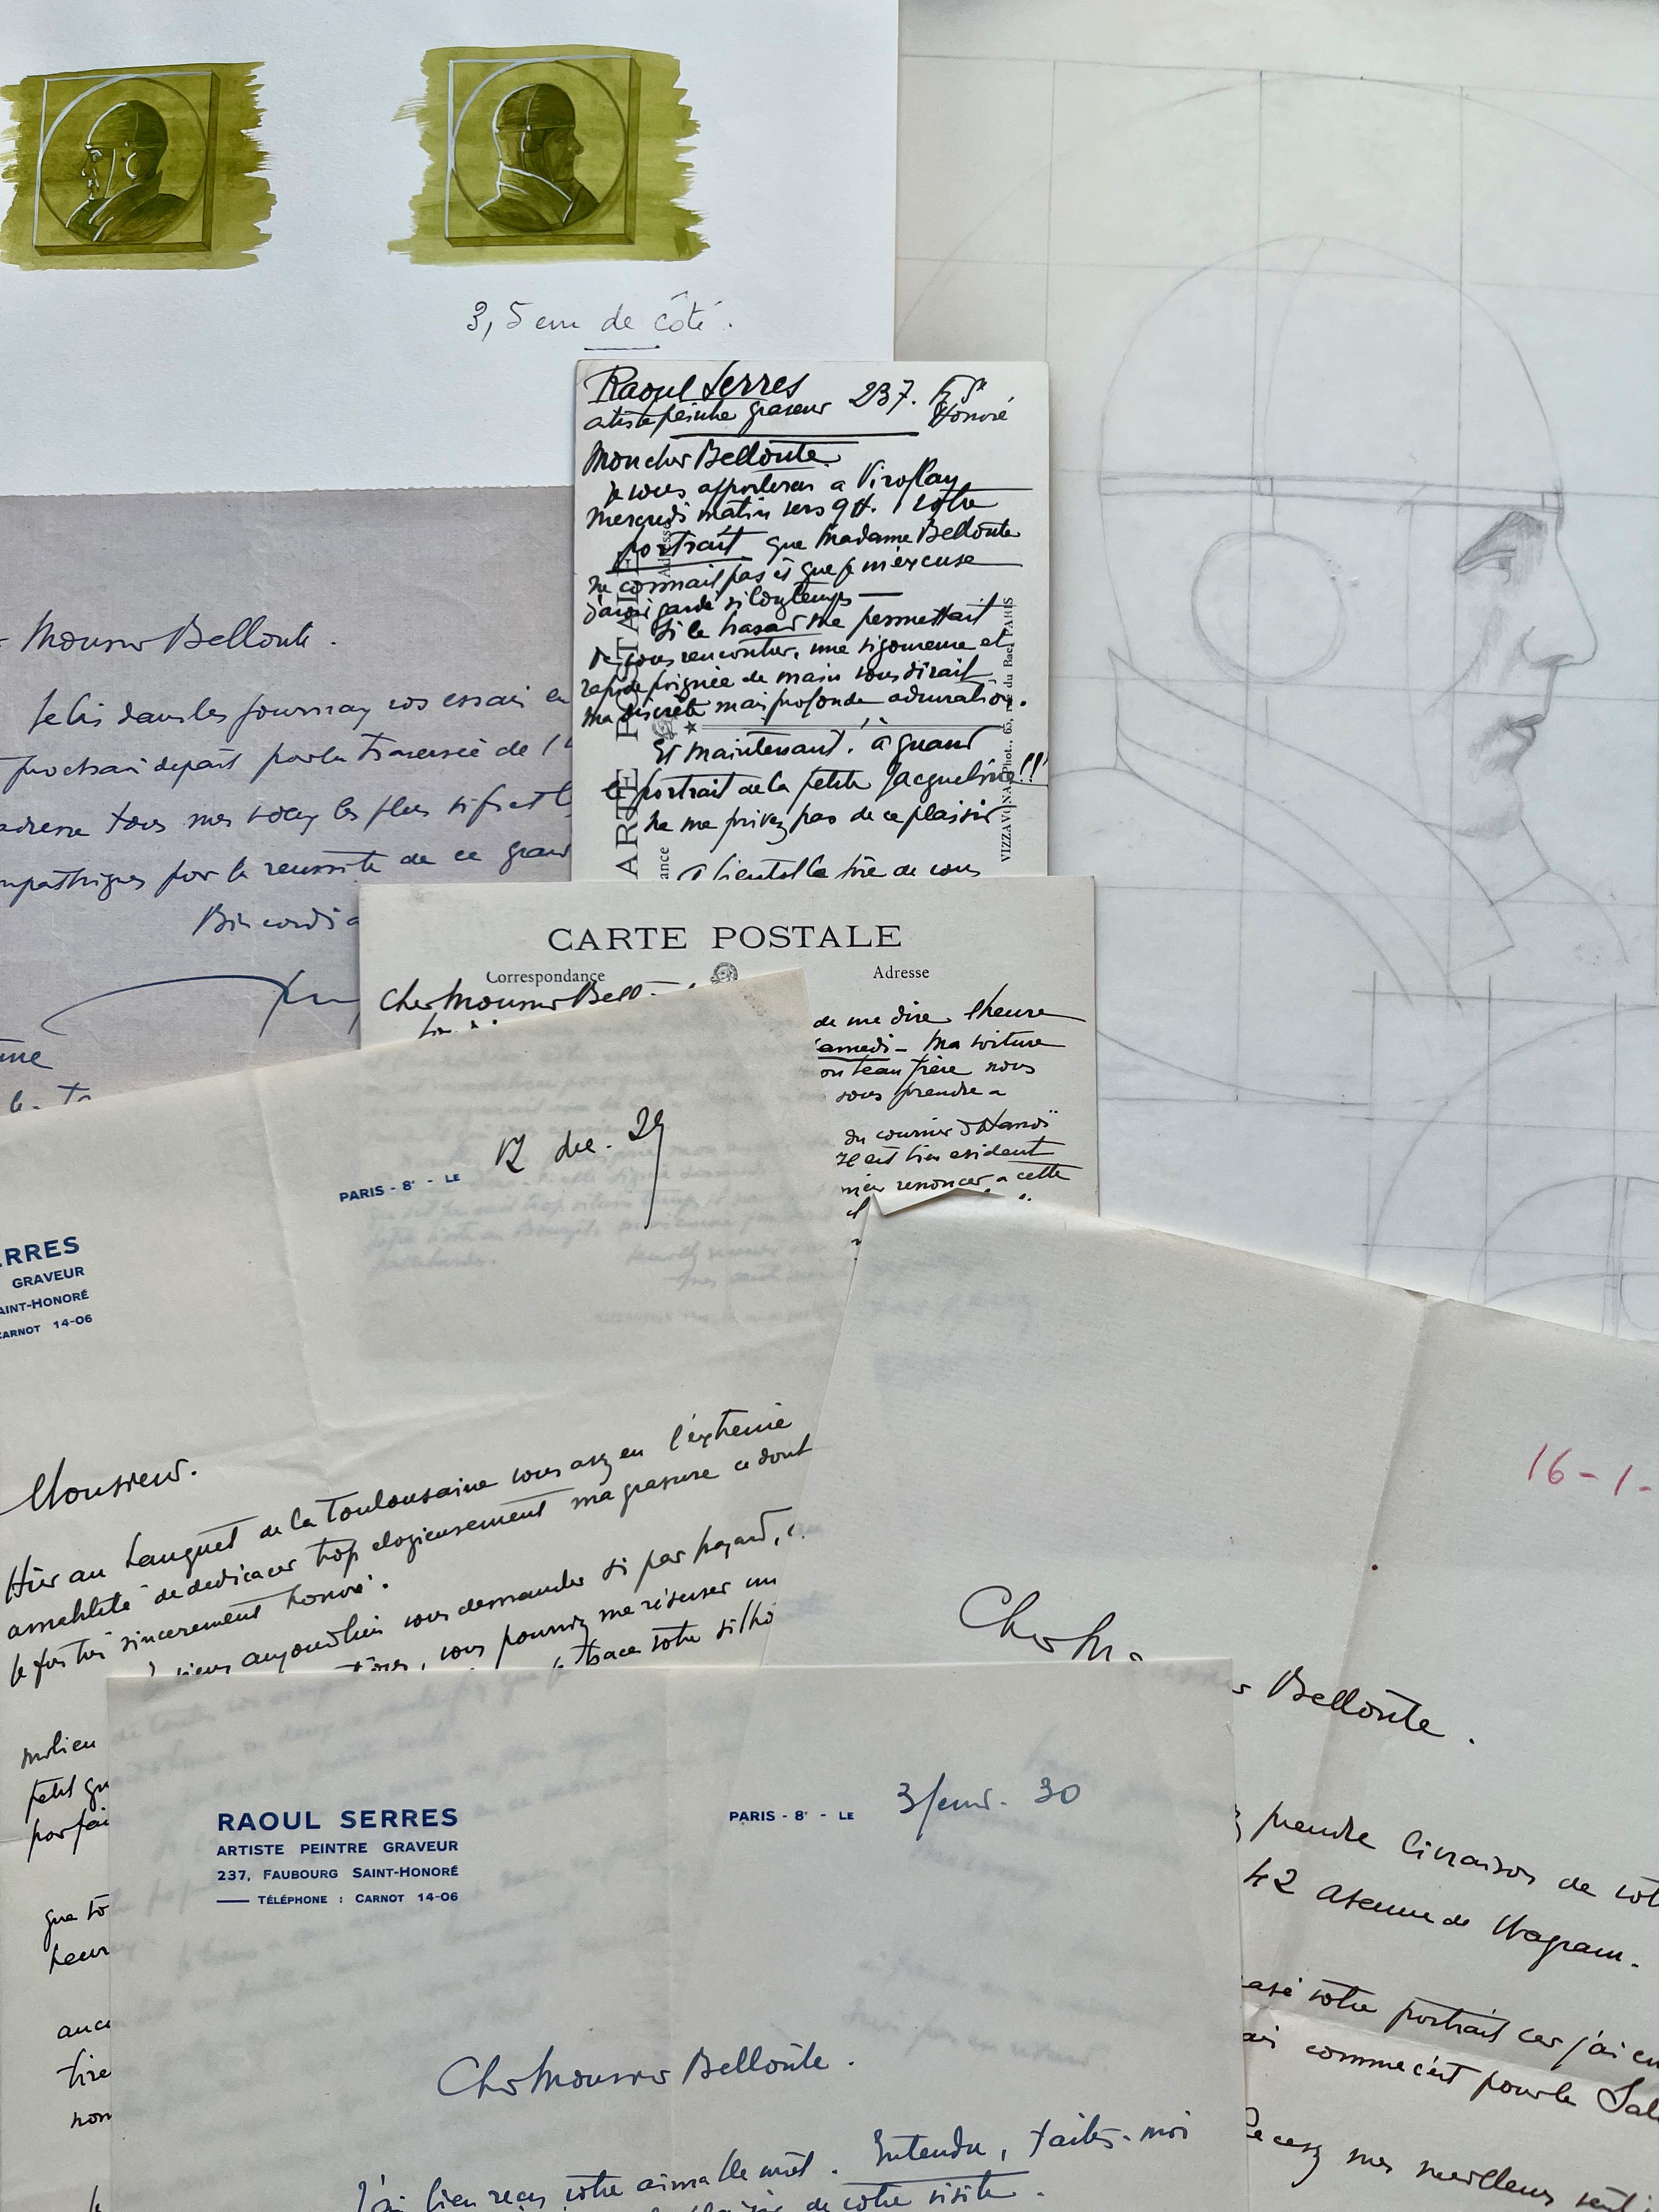 3,5 cm de côté.
Raoul Serres 237. Fg St
artiste peintre graveur Honoré
Mon cher Bellonte
Je vous apporterai a Viroflay
mercredi matin vers 9H. votre
portrait que Madame Bellonte
ne connait pas et que je m'excuse
d'avoir gardé si longtemps —
Si le hasard me permettait
de vous rencontrer, une vigoureuse et
rapide poignée de main vous dirait
ma discrète mais profonde admiration.
Et maintenant! à quand
le portrait de la petite Jacqueline!!
ne me privez pas de ce plaisir
A bientôt la joie de vous
CARTE POSTALE
VIZZAVONA, Phot., 65, rue du Bac, PARIS
Monsieur Bellonte.
Je lis dans les journaux vos essais en
prochain départ pour la traversée de l'
adresse tous mes voeux les plus vifs et l
pour la reussite de ce grand
Bien cordia
CARTE POSTALE
Correspondance Adresse
Cher Monsieur Bell
de me dire l'heure
amedi - Ma voiture
on beau frère nous
vous prendre a
du courrier d'Hanoï
Il est bien evident
renoncer a cette
PARIS - 8e - LE 12 dec. 29
ERRES
GRAVEUR
AINT-HONORÉ
CARNOT 14-06
Monsieur.
Hier au banquet de la Toulousaine vous avez eu l'extreme
amabilité de dedicacer trop elogieusement ma gravure ce dont
je fus très sincerement honoré.
viens aujourd'hui vous demander si par hazard,
vous pourriez me reserver un
trace votre silho
milieu
petit
parfai
que
heur
aucu
tire
non
16-1-
Cher M
Bellonte.
prendre livraison de vot
42 Avenue de Wagram.
votre portrait car j'ai en
comme c'est pour le Sal
Recevez mes meilleurs senti
RAOUL SERRES
ARTISTE PEINTRE GRAVEUR
237, FAUBOURG SAINT-HONORÉ
TÉLÉPHONE : CARNOT 14-06
PARIS - 8e - LE 3 janv. 30
Cher Monsieur Bellonte.
J'ai bien reçu votre aimable mot. Entendu, faites-moi
de votre visite.